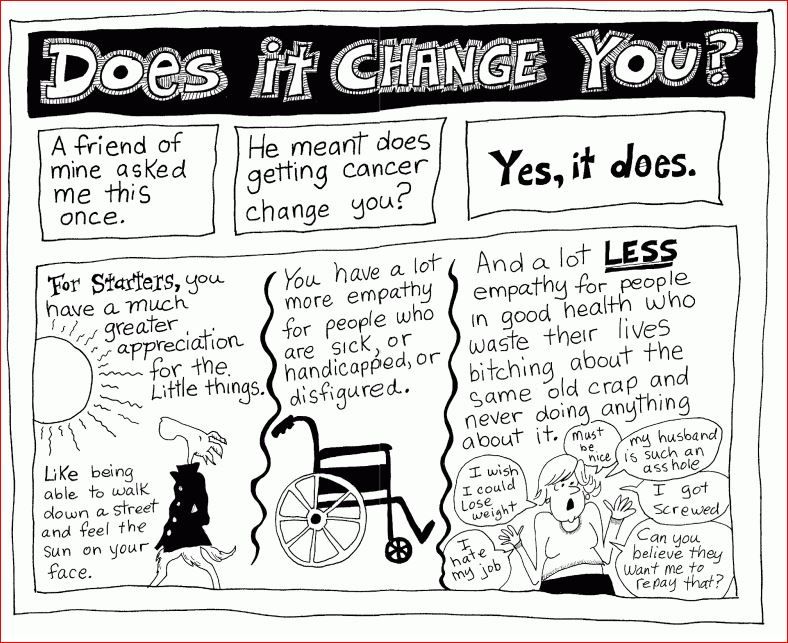 Does it Change You?
A friend of
mine asked
me this
once.
He meant does
getting cancer
change you?
Yes, it does.
For Starters, you
have a much
greater
appreciation
for the
Little things.
Like being
able to walk
down a street
and feel the
sun on your
face.
You have a lot
more empathy
for people who
are sick, or
handicapped, or
disfigured.
And a lot LESS
empathy for people
in good health who
waste their lives
bitching about the
same old crap and
never doing anything
about it.
must
be
nice
my husband
is such an
asshole
I wish
I could
Lose
weight
I got
screwed
I
hate
my job
Can you
believe they
want me to
repay that?